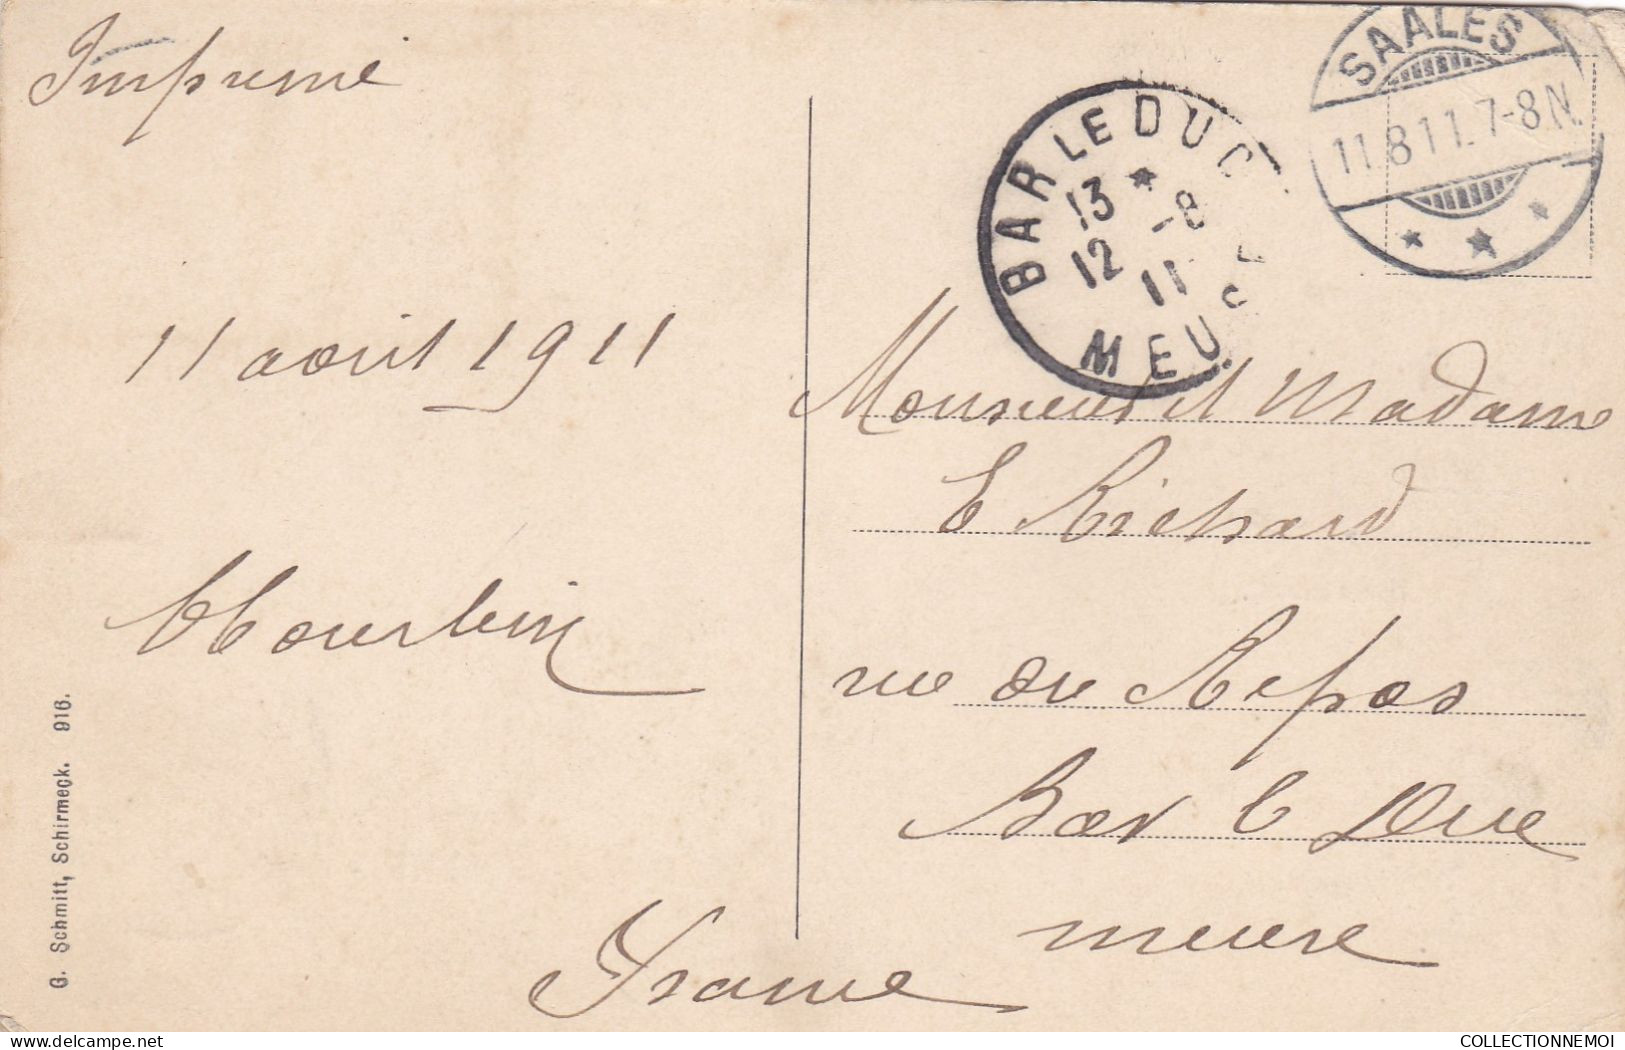 Imprimé
SAALES
11.8 11. 7-8 N.
BAR LE DUC
13 * -8
12 11
MEUSE
11 aout 1911
Monsieur et Madame
E Richard
rue du Repos
Bar le Duc
meuse
France
G. Schmitt, Schirmeck. 916.
COLLECTIONNEMOI